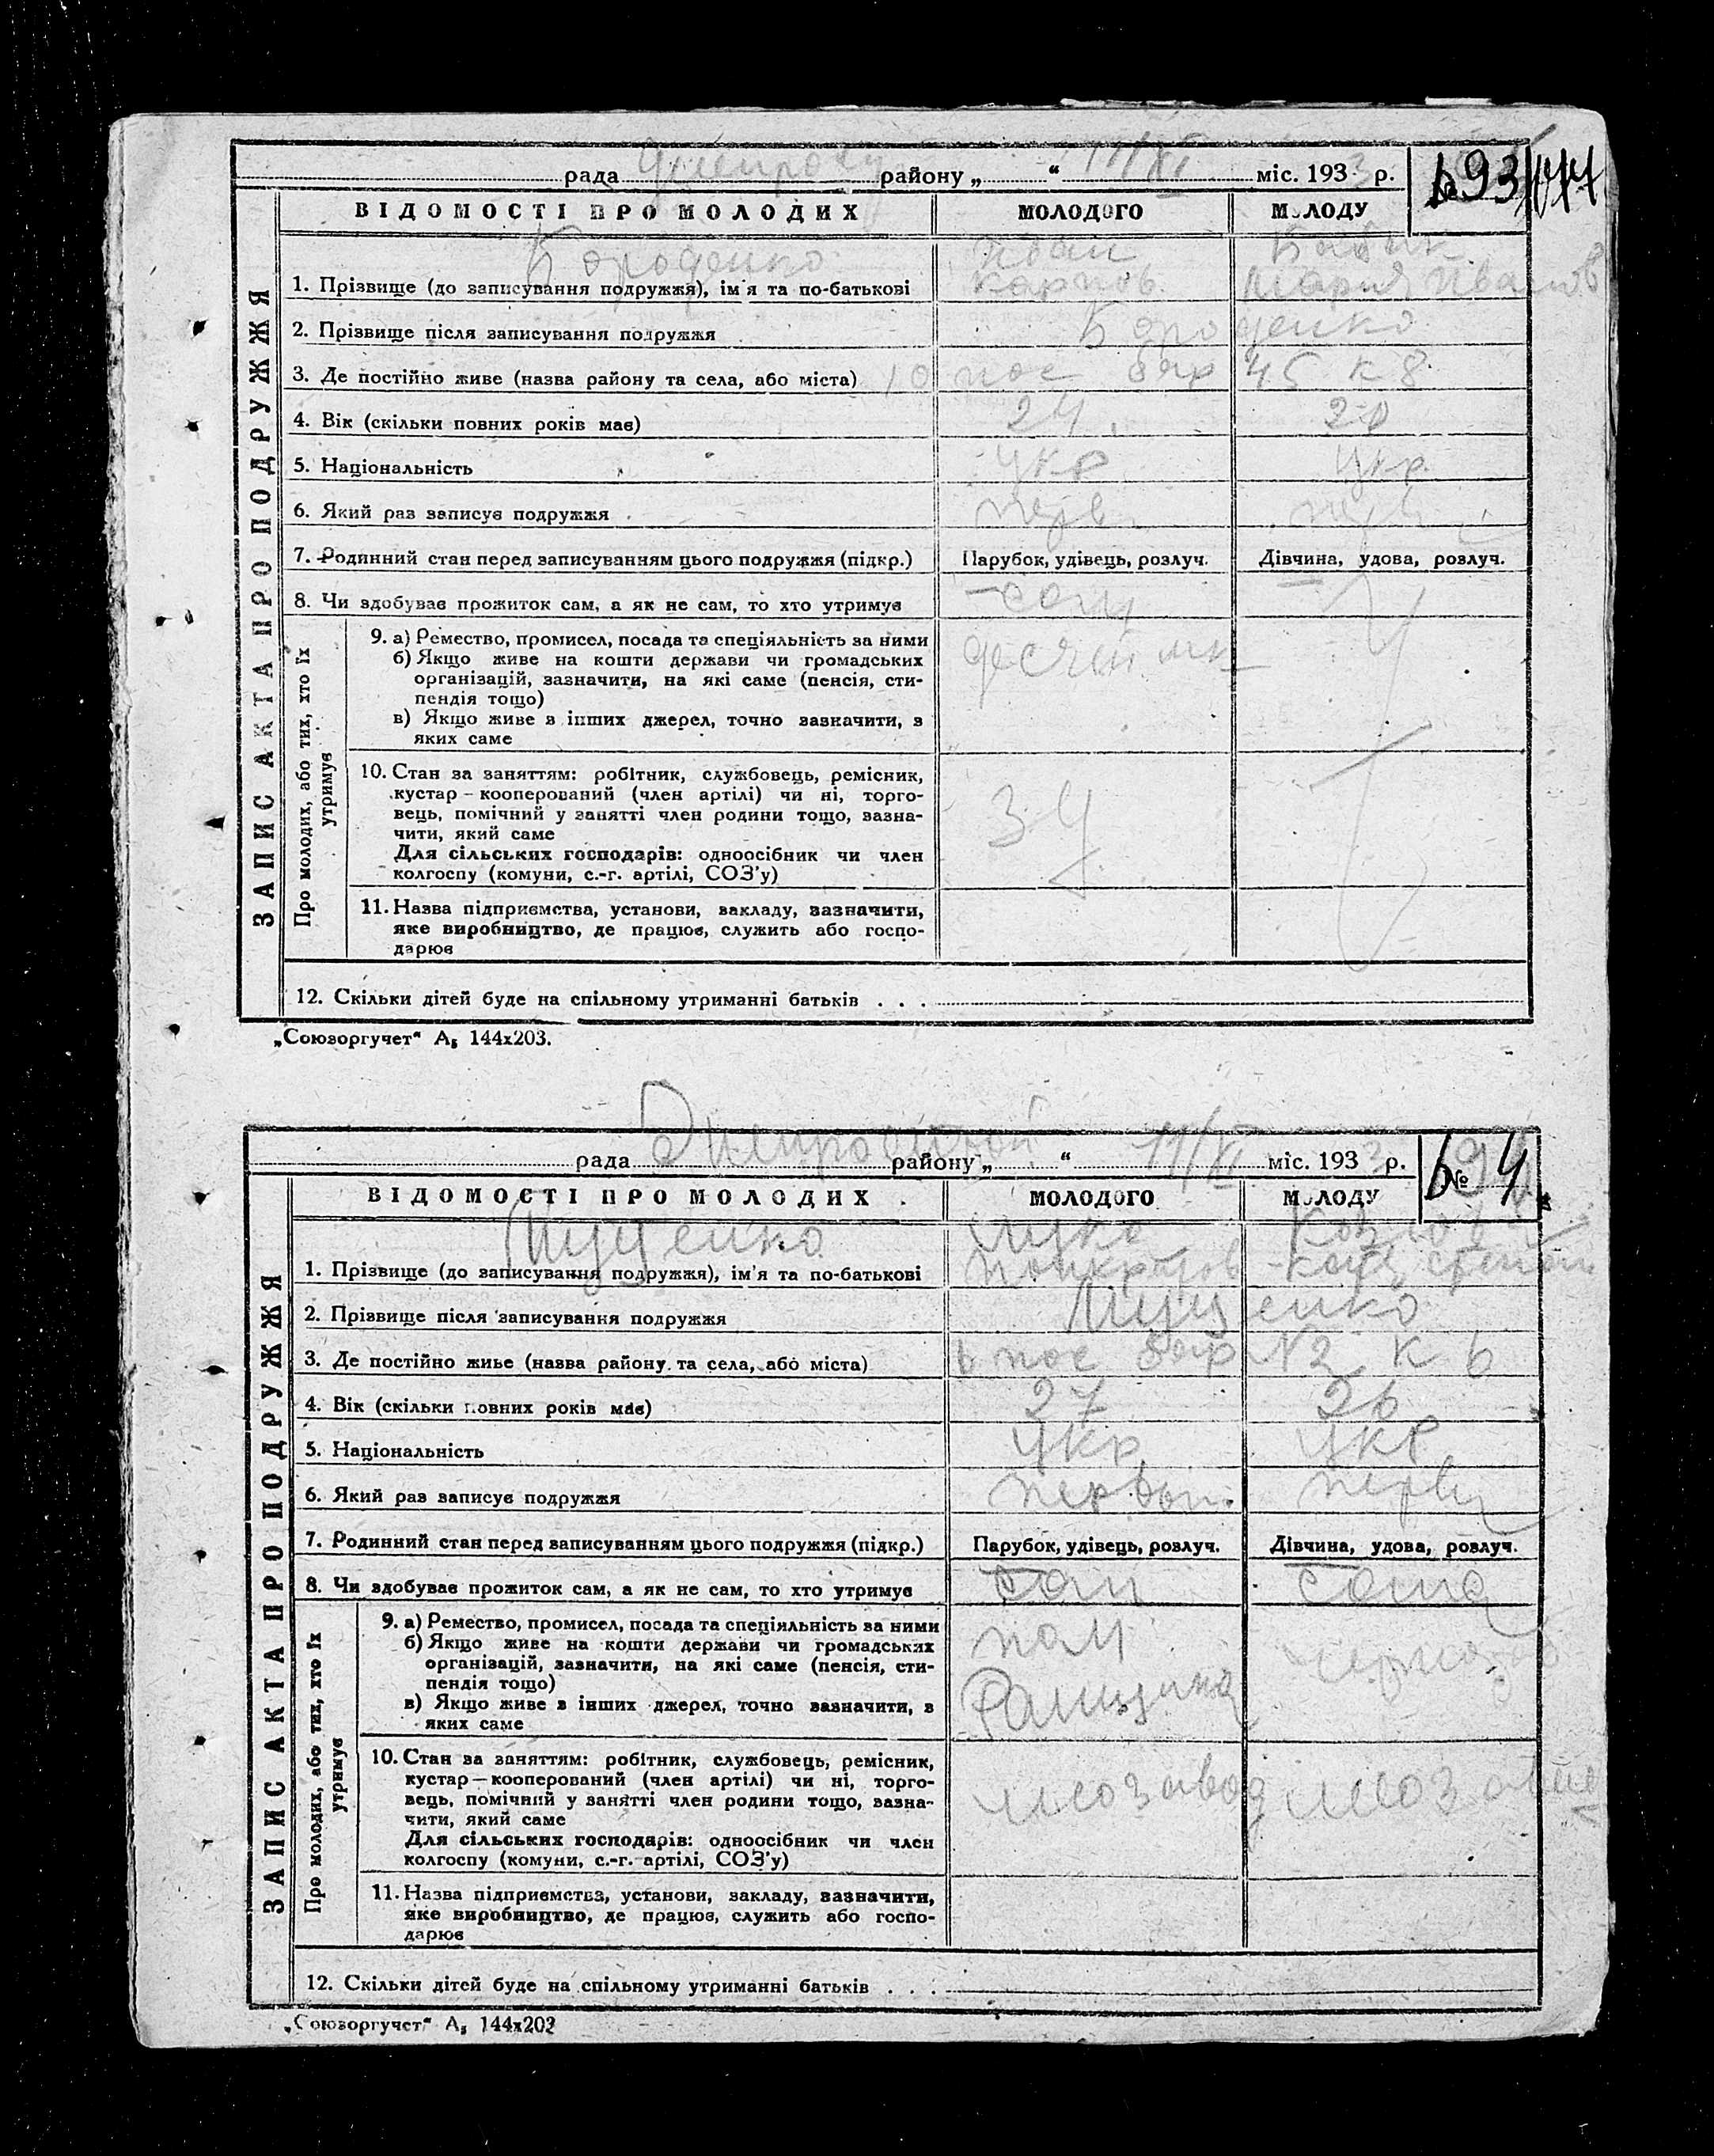 рада района „ “ 11/XI міс. 1933 р.
693
ВІДОМОСТІ ПРО МОЛОДИХ МОЛОДОГО МОЛОДУ
Іван
1. Прізвище (до записування подружжя), ім'я та по-батькові Карпов. Мария Иванов
2. Прізвище після записування подружжя
3. Де постійно живе (назва району та села, або міста) 10 пос бар 45 к 8
4. Вік (скільки повних років має) 24 20
5. Національність укр укр.
6. Який раз записує подружжя перв
7. Родинний стан перед записуванням цього подружжя (підкр.) Парубок, удівець, розлуч. Дівчина, удова, розлуч.
8. Чи здобуває прожиток сам, а як не сам, то хто утримує сам
9. а) Ремество, промисел, посада та спеціяльність за ними десятник
б) Якщо живе на кошти держави чи громадських
організацій, зазначити, на які саме (пенсія, сти-
пендія тощо)
в) Якщо живе з інших джерел, точно зазначити, з
яких саме
10. Стан за заняттям: робітник, службовець, ремісник,
кустар – кооперований (член артілі) чи ні, торго-
вець, помічний у занятті член родини тощо, зазна-
чити, який саме
Для сільських господарів: одноосібник чи член
колгоспу (комуни, с.-г. артілі, СОЗ'у)
11. Назва підприємства, установи, закладу, зазначити,
яке виробництво, де працює, служить або госпо-
дарює
12. Скільки дітей буде на спільному утриманні батьків . . .
ЗАПИС АКТА ПРО ПОДРУЖЖЯ
Про молодих, або тих, хто їх
утримує
„Союзоргучет“ А₅ 144х203.
рада Днепрострой району „ “ 11/XI міс. 1933 р.
№
ВІДОМОСТІ ПРО МОЛОДИХ МОЛОДОГО МОЛОДУ
1. Прізвище (до записування подружжя), ім'я та по-батькові
2. Прізвище після записування подружжя
3. Де постійно живе (назва району та села, або міста) 6 пос бар №2 к 6
4. Вік (скільки повних років має) 27 26
5. Національність укр укр
6. Який раз записує подружжя первый
7. Родинний стан перед записуванням цього подружжя (підкр.) Парубок, удівець, розлуч. Дівчина, удова, розлуч.
8. Чи здобуває прожиток сам, а як не сам, то хто утримує сам сама
9. а) Ремество, промисел, посада та спеціяльність за ними пом
б) Якщо живе на кошти держави чи громадських
організацій, зазначити, на які саме (пенсія, сти-
пендія тощо)
в) Якщо живе з інших джерел, точно зазначити, з
яких саме
10. Стан за заняттям: робітник, службовець, ремісник,
кустар — кооперований (член артілі) чи ні, торго-
вець, помічний у занятті член родини тощо, зазна-
чити, який саме
Для сільських господарів: одноосібник чи член
колгоспу (комуни, с.-г. артілі, СОЗ'у)
11. Назва підприємства, установи, закладу, зазначити,
яке виробництво, де працює, служить або госпо-
дарює
12. Скільки дітей буде на спільному утриманні батьків . . .
ЗАПИС АКТА ПРО ПОДРУЖЖЯ
Про молодих, або тих, хто їх
утримує
„Союзоргучет“ А₅ 144х203